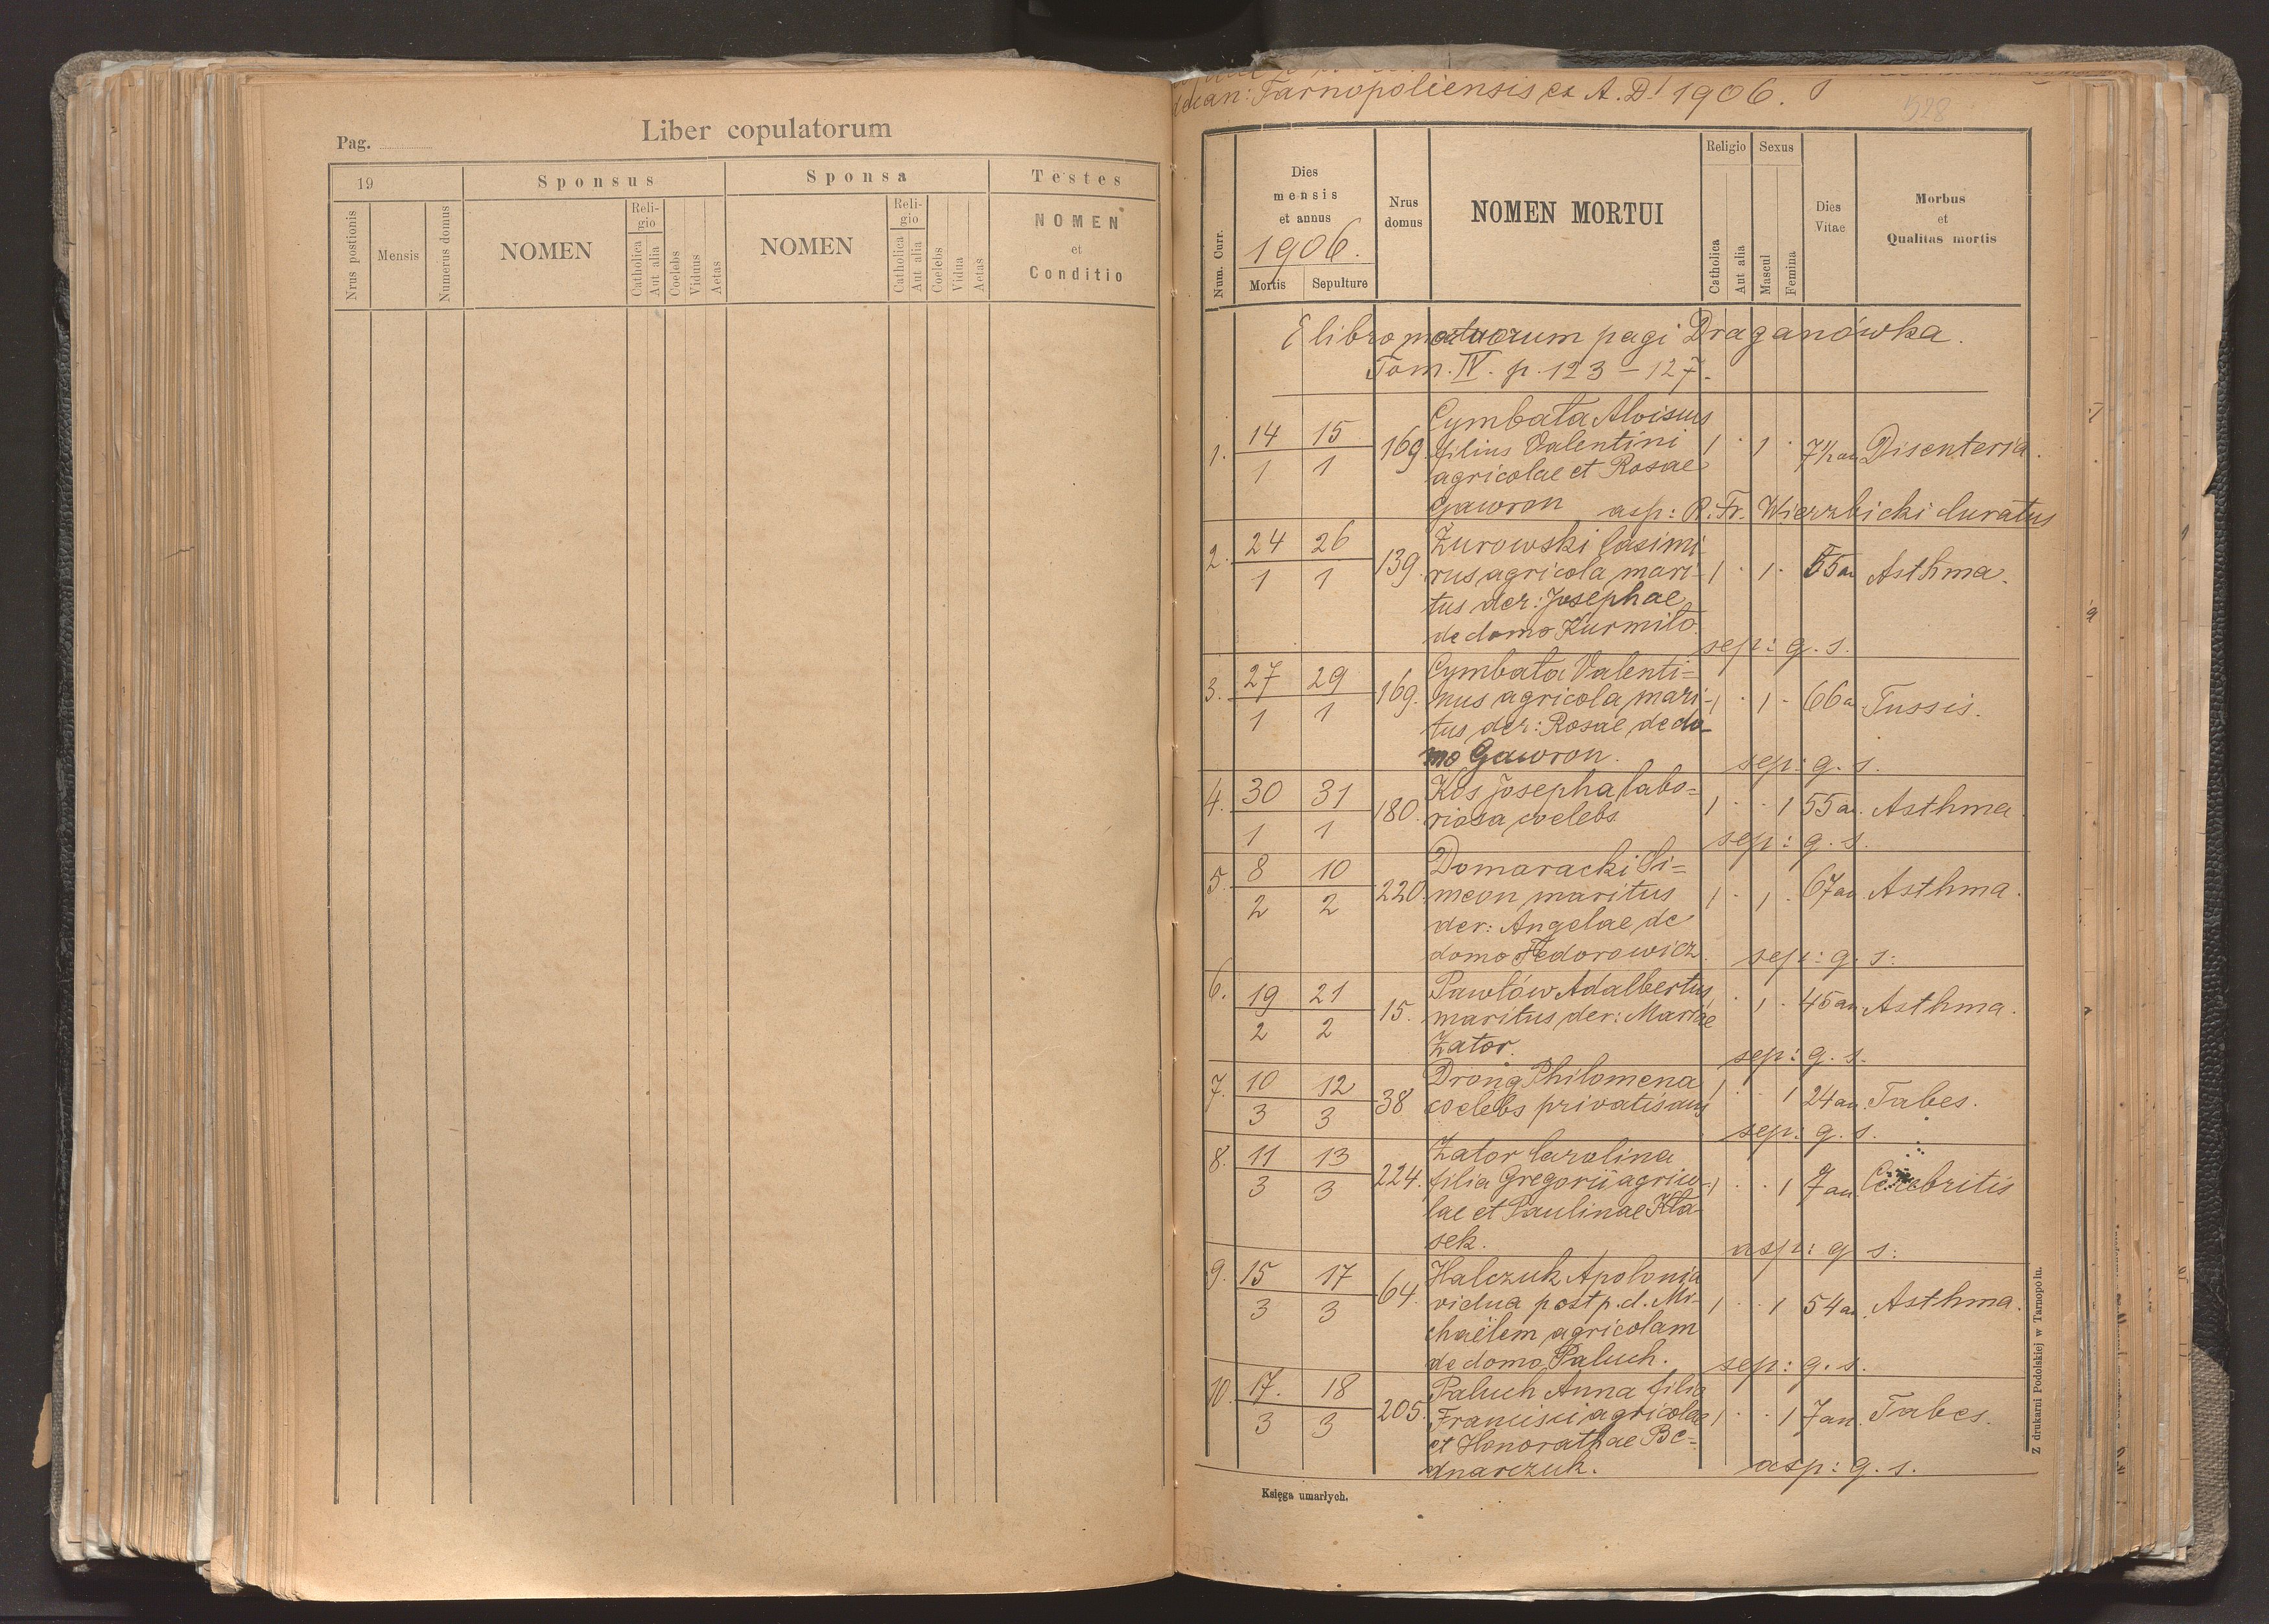 Pag.
Liber copulatorum
19
Sponsus
Sponsa
Testes
Nrus postionis
Mensis
Numerus domus
NOMEN
Reli-
gio
Catholica
Aut alia
Coelebs
Viduus
Aetas
NOMEN
Reli-
gio
Catholica
Aut alia
Coelebs
Vidua
Aetas
NOMEN
et
Conditio
decan: Tarnopoliensis ex A. D! 1906.
528
Num. Curr.
Dies
mensis
et annus
1906.
Mortis
Sepulture
Nrus
domus
NOMEN MORTUI
Religio
Catholica
Aut alia
Sexus
Mascul
Femina
Dies
Vitae
Morbus
et
Qualitas mortis
E libro mortuorum pagi Draganówka.
Tom. IV. p. 123 - 127.
Cymbała Aloisius
1. 14/1 15/1 169. filius Valentini 1 · 1 · 7½ an Disenteria.
agricolae et Rosae
Gawron asp: R. Fr. Wierzbicki Curatus
2. 24/1 26/1 Żurowski Casimi
139. rus agricola mari- 1 · 1 · 55 an Asthma.
tus der: Josephae
de domo Kurmiło. sep: g. s.
3. 27/1 29/1 Cymbała Valenti=
169. nus agricola mari- 1 · 1 - 66 a Tussis.
tus der: Rosae de do-
mo Gawron. sep: g. s.
4. 30/1 31/1 Kos Josepha labo=
180. riosa coelebs 1 · · 1 55 an. Asthma.
sep: g. s.
5. 8/2 10/2 Domaracki Si=
220. meon maritus 1 · 1 · 67 an. Asthma.
der: Angelae de
domo Fedorowicz. sep: g. s.
6. 19/2 21/2 Pawłów Adalbertus
15. maritus der: Mariae · 1 · 45 an. Asthma.
Zator. sep: g. s.
7. 10/3 12/3 Drong Philomena
38 coelebs privatisans 1 · · 1 24 an. Tabes.
sep: g. s.
8. 11/3 13/3 Zator Carolina
224. filia Gregorii agrico- 1 · · 1 7 an.
lae et Paulinae Kła-
sek. asp: g. s.
9. 15/3 17/3 Halczuk Apolonia
64. vidua post p. d. Mi- 1 · · 1 54 an. Asthma.
chaëlem agricolam
de domo Paluch. sep: g. s.
10. 17./3 18/3 Paluch Anna filia
205. Francisci agricolae 1 · · 1 7 an. Tabes.
et Honorathae Be=
dnarczuk. asp: g. s.
Księga umarłych.
Z drukarni Podolskiej w Tarnopolu.